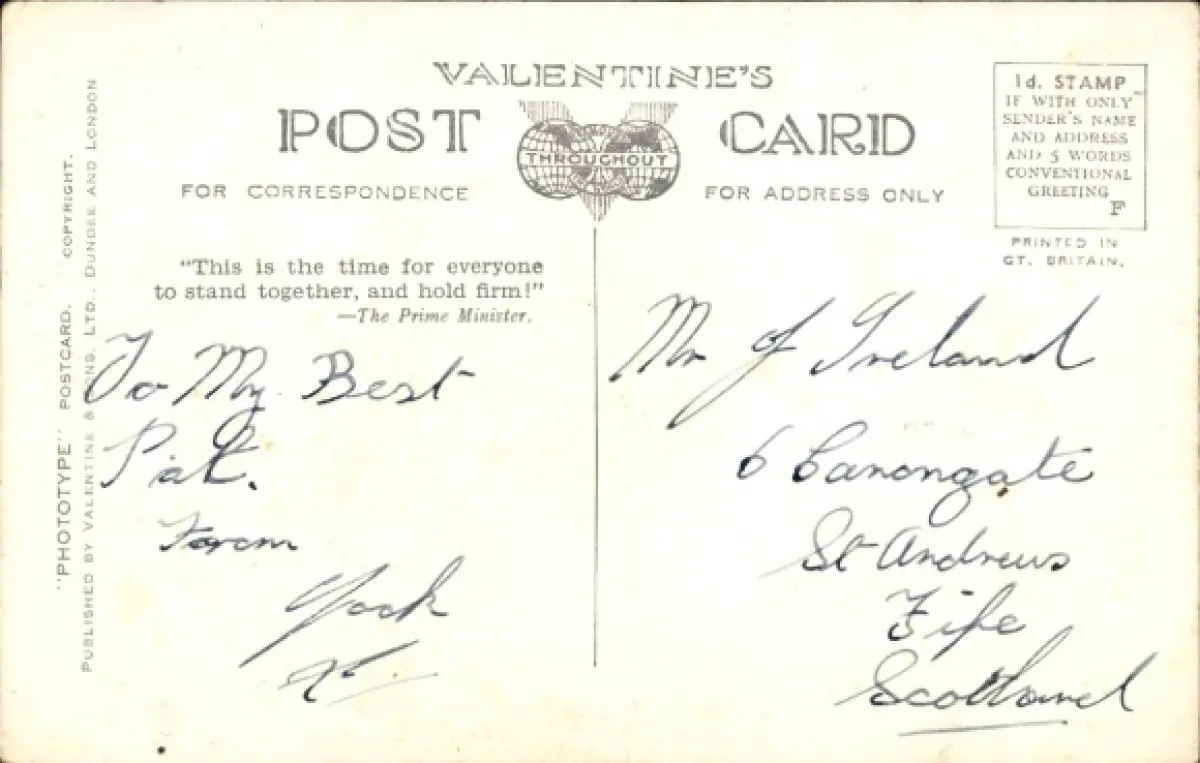 VALENTINE'S
POST CARD
THROUGHOUT
FOR CORRESPONDENCE
FOR ADDRESS ONLY
1d. STAMP
IF WITH ONLY
SENDER'S NAME
AND ADDRESS
AND 5 WORDS
CONVENTIONAL
GREETING
F
PRINTED IN
GT. BRITAIN.
"PHOTOTYPE" POSTCARD. COPYRIGHT.
PUBLISHED BY VALENTINE & SONS, LTD., DUNDEE AND LONDON
"This is the time for everyone
to stand together, and hold firm!"
—The Prime Minister.
To My Best
Pal.
From
Jock
Mr J Ireland
6 Canongate
St Andrews
Fife
Scotland